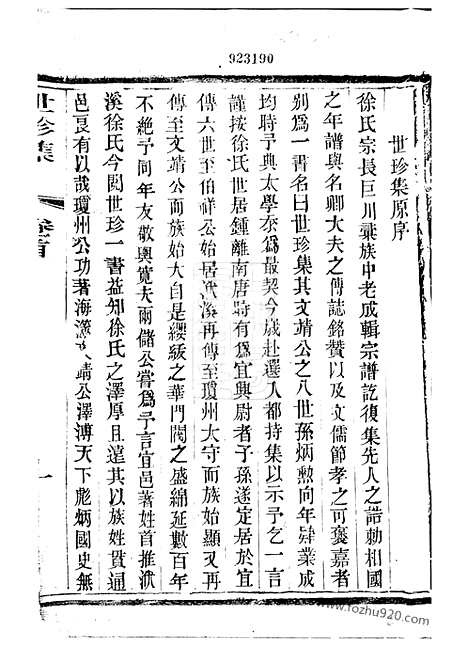 923190
世珍集原序
徐氏宗長巨川彙族中老成輯宗譜訖復集先人之誥勅相國
之年譜與名卿大夫之傳誌銘贊以及文儒節孝之可褒嘉者
别爲一書名曰世珍集其文靖公之八世孫炳勲向年肄業成
均時予典太學奈爲最契今歲赴選入都持集以示予乞一言
謹按徐氏世居鍾離南唐時有爲宜興尉者子孫遂定居於宜
傳六世至伯祥公始居洑溪再傳至瓊州太守而族始顯又再
傳至文靖公而族始大自是纓紱之華門閥之盛綿延數百年
不絶予同年友敬輿寬夫兩儲公嘗爲予言宜邑著姓首推洑
溪徐氏今閲世珍一書益知徐氏之澤厚且遠其以族姓貫通
邑良有以哉瓊州公功著海濱 靖公澤溥天下彪炳國史無
世珍集
卷首
一
www.fozhu920.com